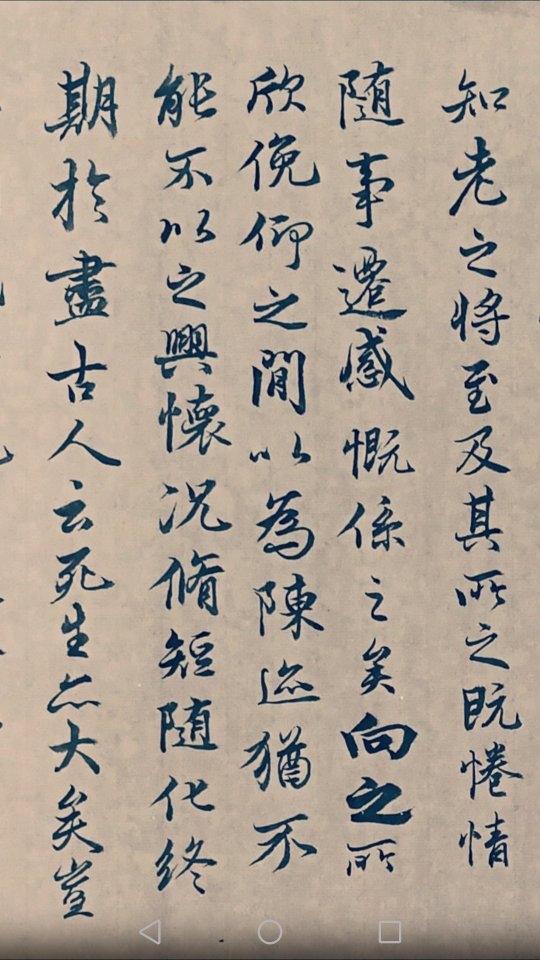 知老之将至及其所之既惓情
随事遷感慨係之矣向之所
欣俛仰之間以為陳迹猶不
能不以之興懷况脩短随化終
期於盡古人云死生亦大矣豈